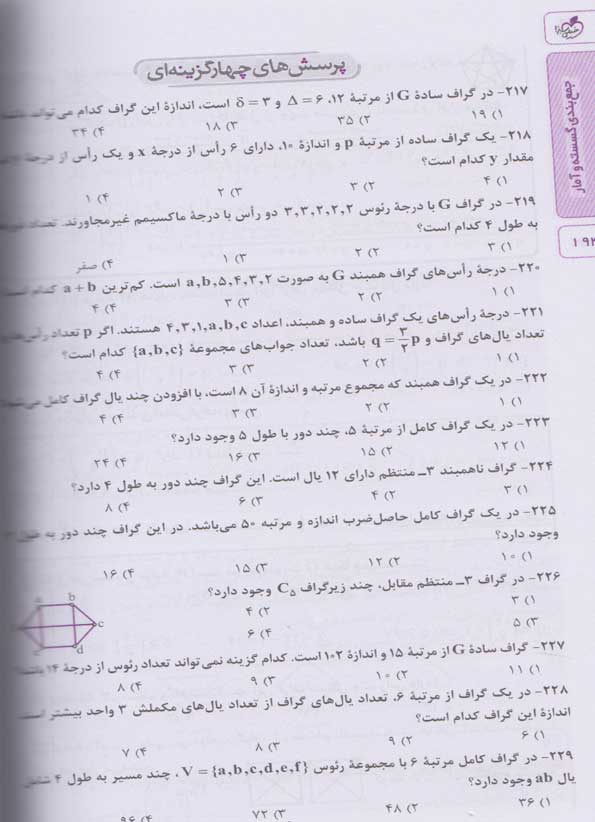 جمع‌بندی گسسته و آمار
پرسش‌های چهارگزینه‌ای
۲۱۷- در گراف سادهٔ G از مرتبهٔ ۱۲، Δ = ۶ و δ = ۳ است، اندازهٔ این گراف کدام می‌تواند
۱) ۱۹ ۲) ۳۵ ۳) ۱۸ ۴) ۳۴
۲۱۸- یک گراف ساده از مرتبهٔ p و اندازهٔ ۱۰، دارای ۶ رأس از درجهٔ x و یک رأس از درجهٔ
مقدار y کدام است؟
۱) ۴ ۲) ۳ ۳) ۲ ۴) ۱
۲۱۹- در گراف G با درجهٔ رئوس ۳,۳,۲,۲,۲ دو رأس با درجهٔ ماکسیمم غیرمجاورند. تعداد
به طول ۴ کدام است؟
۱) ۳ ۲) ۲ ۳) ۱ ۴) صفر
۲۲۰- درجهٔ رأس‌های گراف همبند G به صورت a,b,۵,۴,۳,۲ است. کم‌ترین a + b کدام است
۱) ۱ ۲) ۲ ۳) ۳ ۴) ۴
۲۲۱- درجهٔ رأس‌های یک گراف ساده و همبند، اعداد ۴,۳,۱,a,b,c هستند. اگر p تعداد رأس‌ها
تعداد یال‌های گراف و q = ۳/۲ p باشد، تعداد جواب‌های مجموعهٔ {a,b,c} کدام است؟
۱) ۱ ۲) ۲ ۳) ۳ ۴) ۴
۲۲۲- در یک گراف همبند که مجموع مرتبه و اندازهٔ آن ۸ است، با افزودن چند یال گراف کامل می‌شود
۱) ۱ ۲) ۲ ۳) ۳ ۴) ۴
۲۲۳- در یک گراف کامل از مرتبهٔ ۵، چند دور با طول ۵ وجود دارد؟
۱) ۱۲ ۲) ۱۵ ۳) ۱۶ ۴) ۲۴
۲۲۴- گراف ناهمبند ۳ـ منتظم دارای ۱۲ یال است. این گراف چند دور به طول ۴ دارد؟
۱) ۳ ۲) ۴ ۳) ۶ ۴) ۸
۲۲۵- در یک گراف کامل حاصل‌ضرب اندازه و مرتبه ۵۰ می‌باشد. در این گراف چند دور به طول
وجود دارد؟
۱) ۱۰ ۲) ۱۲ ۳) ۱۵ ۴) ۱۶
۲۲۶- در گراف ۳ـ منتظم مقابل، چند زیرگراف C۵ وجود دارد؟
۱) ۳ ۲) ۴
۳) ۵ ۴) ۶
a b
c
e d
۲۲۷- گراف سادهٔ G از مرتبهٔ ۱۵ و اندازهٔ ۱۰۲ است. کدام گزینه نمی‌تواند تعداد رئوس از درجهٔ ۱۴ باشد
۱) ۱۱ ۲) ۱۰ ۳) ۹ ۴) ۸
۲۲۸- در یک گراف از مرتبهٔ ۶، تعداد یال‌های گراف از تعداد یال‌های مکملش ۳ واحد بیشتر است
اندازهٔ این گراف کدام است؟
۱) ۶ ۲) ۹ ۳) ۸ ۴) ۷
۲۲۹- در گراف کامل مرتبهٔ ۶ با مجموعهٔ رئوس V = {a,b,c,d,e,f}، چند مسیر به طول ۴ شامل
یال ab وجود دارد؟
۱) ۳۶ ۲) ۴۸ ۳) ۷۲ ۴) ۹۶